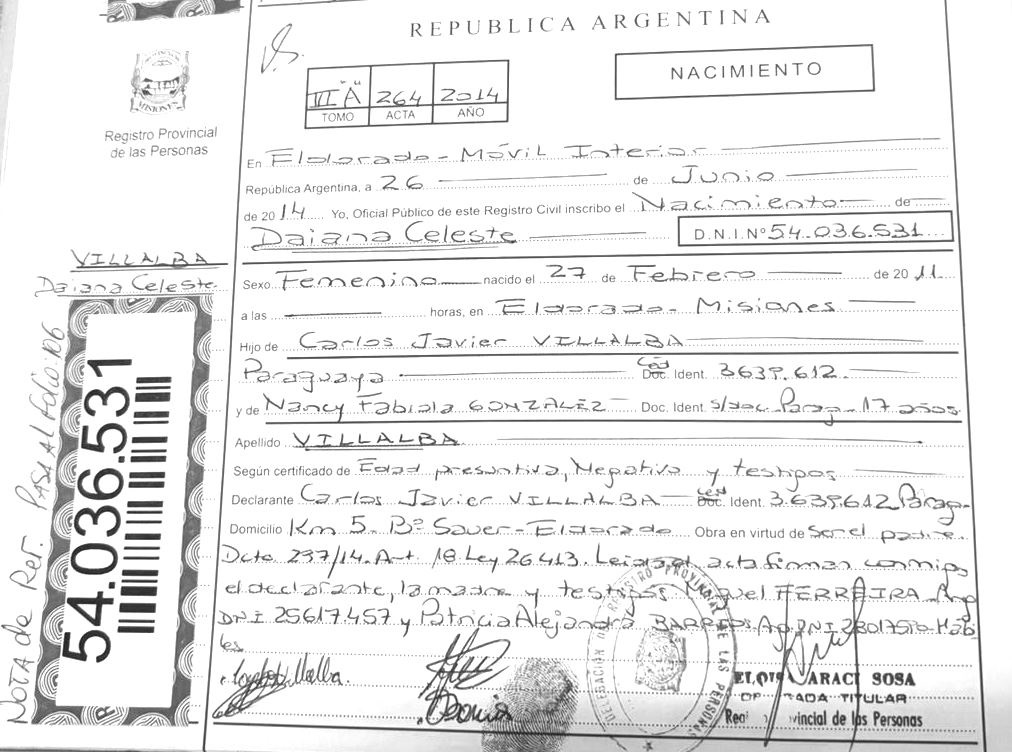 REPUBLICA ARGENTINA
NACIMIENTO
III A 264 2014
TOMO ACTA AÑO
MISIONES
Registro Provincial
de las Personas
En Eldorado - Móvil Interior
República Argentina, a 26 de Junio
de 2014 Yo, Oficial Público de este Registro Civil inscribo el Nacimiento de
Daiana Celeste D.N.I.Nº 54.036.531
VILLALBA
Daiana Celeste
54.036.531
NOTA de Ref. PASA AL folio: 106
Sexo Femenino nacido el 27 de Febrero de 2011
a las horas, en Eldorado - Misiones
Hijo de Carlos Javier VILLALBA
Paraguaya Ced Doc. Ident. 3639.612
y de Nancy Fabiola GONZALEZ Doc. Ident. s/doc. Parag - 17 años.
Apellido VILLALBA
Según certificado de Edad presuntiva, Negativa y testigos
Declarante Carlos Javier VILLALBA Ced Doc. Ident. 3.639.612 Parag-
Domicilio Km 5. Bº Sauer - Eldorado Obra en virtud de Ser el padre.
Dcto 297/14. Art. 18 Ley 26.413. Leida el acta firman conmigo
el declarante, la madre y testigos Miguel FERREIRA Arg
DNI 25617.457 y Patricia Alejandra BARRIOS Ag DNI Hábi-
les
REGISTRO PROVINCIAL DE LAS PERSONAS
DELEGACIÓN
ARACI SOSA
TITULAR
Provincial de las Personas